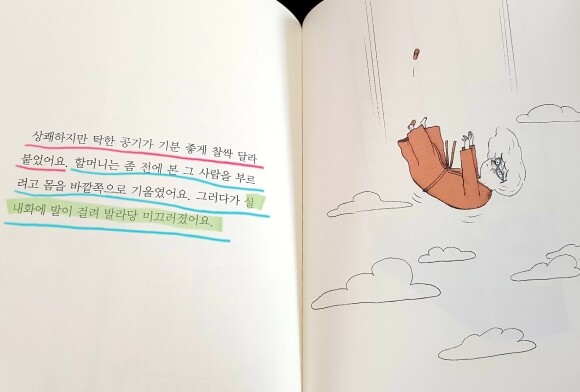 상쾌하지만 탁한 공기가 기분 좋게 찰싹 달라
붙었어요. 할머니는 좀 전에 본 그 사람을 부르
려고 몸을 바깥쪽으로 기울였어요. 그러다가 실
내화에 발이 걸려 발라당 미끄러졌어요.